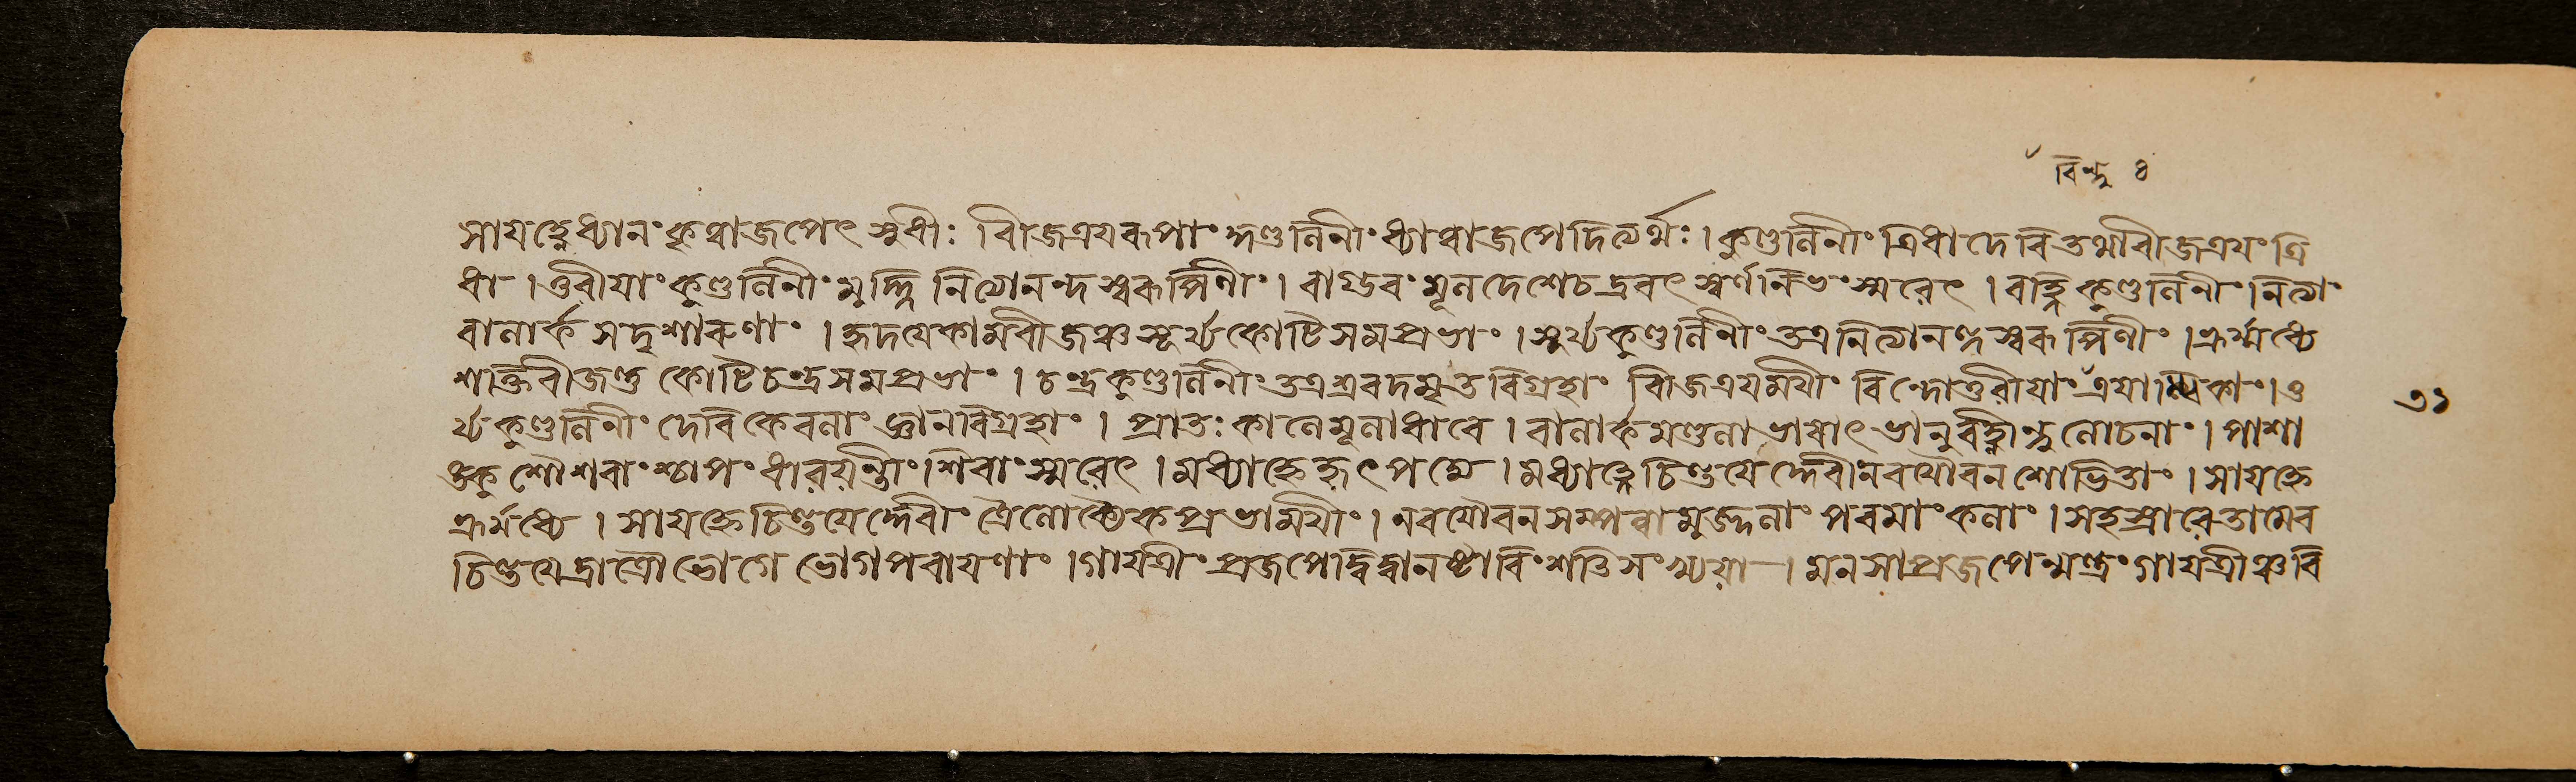 বিন্দু ৪
সায়হ্নেধ্যানং কৃত্বাজপেৎ সুধীঃ বীজত্রয়রূপাং কুণ্ডলিনীং ধ্যাত্বাজপেদিত্যর্থঃ। কুণ্ডলিনীং ত্রিধা দেবি তথাবীজত্রয়ং ত্রি
ধা। তুরীয়াং কুণ্ডলিনীং মুর্দ্ধ্নি নিত্যানন্দস্বরূপিণীং। বাগ্ভবং মূলদেশেচ দ্রবৎ স্বর্ণনিভং স্মরেৎ। বহ্নি কুণ্ডলিনীং নিত্যাং
বালার্ক সদৃশারুণাং। হৃদয়েকামবীজঞ্চ সূর্য্যকোটিসমপ্রভাং। সূর্য্যকুণ্ডলিনীং তত্র নিত্যানন্দস্বরূপিণীং। ভ্রূমধ্যে
শক্তিবীজন্তু কোটিচন্দ্রসমপ্রভাং। চন্দ্রকুণ্ডলিনীং তত্র স্রবদমৃতবিগ্রহাং বীজত্রয়ময়ীং বিন্দোতুরীয়াং ত্রয়াত্মিকাং। ও
র্য্যকুণ্ডলিনীং দেবি কেবলাং জ্ঞানবিগ্রহাং। প্রাতঃকালেমূলাধারে। বালার্কমণ্ডলাভাষাৎ ভানুবহ্নীন্দুলোচনাং। পাশা
ঙ্কুশৌশরাংশ্চাপং ধারয়ন্তীং শিবাং স্মরেৎ। মধ্যাহ্নেহৃৎপদ্মে। মধ্যাহ্নেচিন্তয়েদ্দেবীংনবযৌবনশোভিতাং। সায়হ্নে
ভ্রূমধ্যে। সায়হ্নেচিন্তয়েদ্দেবীং ত্রৈলোক্যৈকপ্রভাময়ীং। নবযৌবনসম্পন্নামুজ্জ্বলাং পরমাং কলাং। সহস্রারেতামেব
চিন্তয়েদ্রাত্রৌভোগে ভোগপরায়ণাং। গায়ত্রীং প্রজপেদ্বিদ্বানষ্টাবিংশতিসংখ্যয়া। মনসাপ্রজপেন্মন্ত্রং গায়ত্রীঞ্চবি
৩১